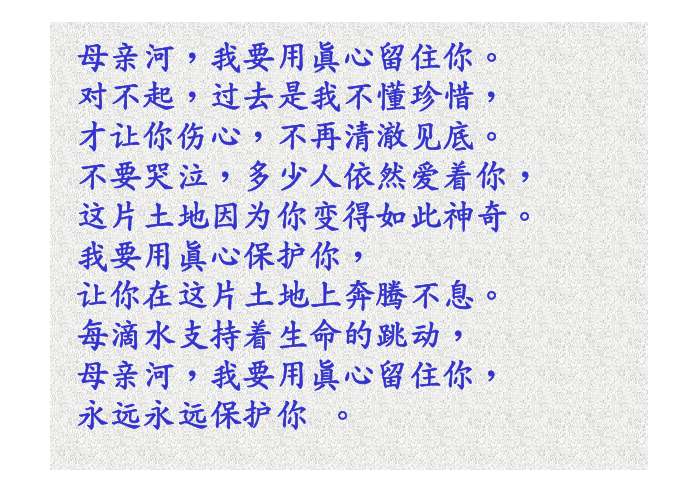 母亲河，我要用真心留住你。
对不起，过去是我不懂珍惜，
才让你伤心，不再清澈见底。
不要哭泣，多少人依然爱着你，
这片土地因为你变得如此神奇。
我要用真心保护你，
让你在这片土地上奔腾不息。
每滴水支持着生命的跳动，
母亲河，我要用真心留住你，
永远永远保护你 。